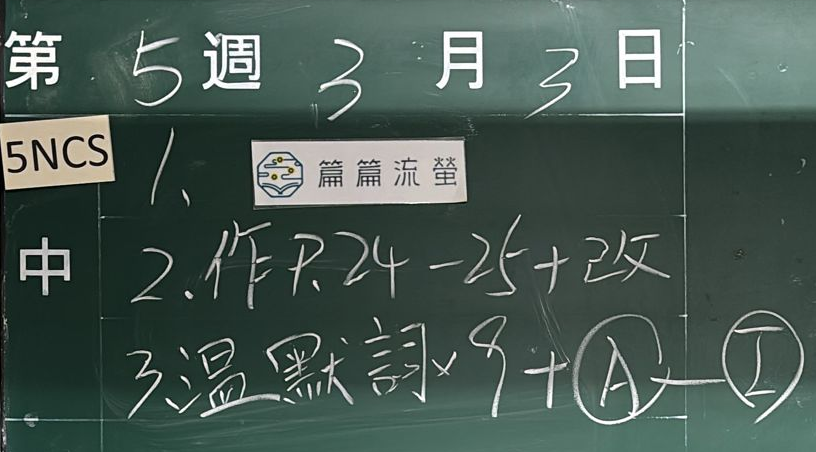 第5週3月3日
5NCS
1、篇篇流螢
中
2.作P.24-25+改
3.溫默詞×9+Ⓐ-Ⓘ